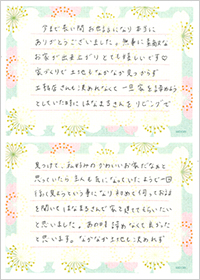 今まで長い間お世話になり本当に
ありがとうございました。無事に素敵な
お家が出来上がりとても嬉しいです♡
家づくりで土地もなかなか見つからず
工務店さんも決めれなくて一旦家を諦めよう
としていた時にはなまるさんをリビングで
見つけて、私好みのかわいいお家だなぁと
思っていたらまんも気になっていたようで一回
詳しく見ようという事になり初めて伺ってお話
を聞いてはなまるさんで家を建ててもらいたい
と思いました。あの時諦めなくて良かった
と思います。なかなか土地も決めれず